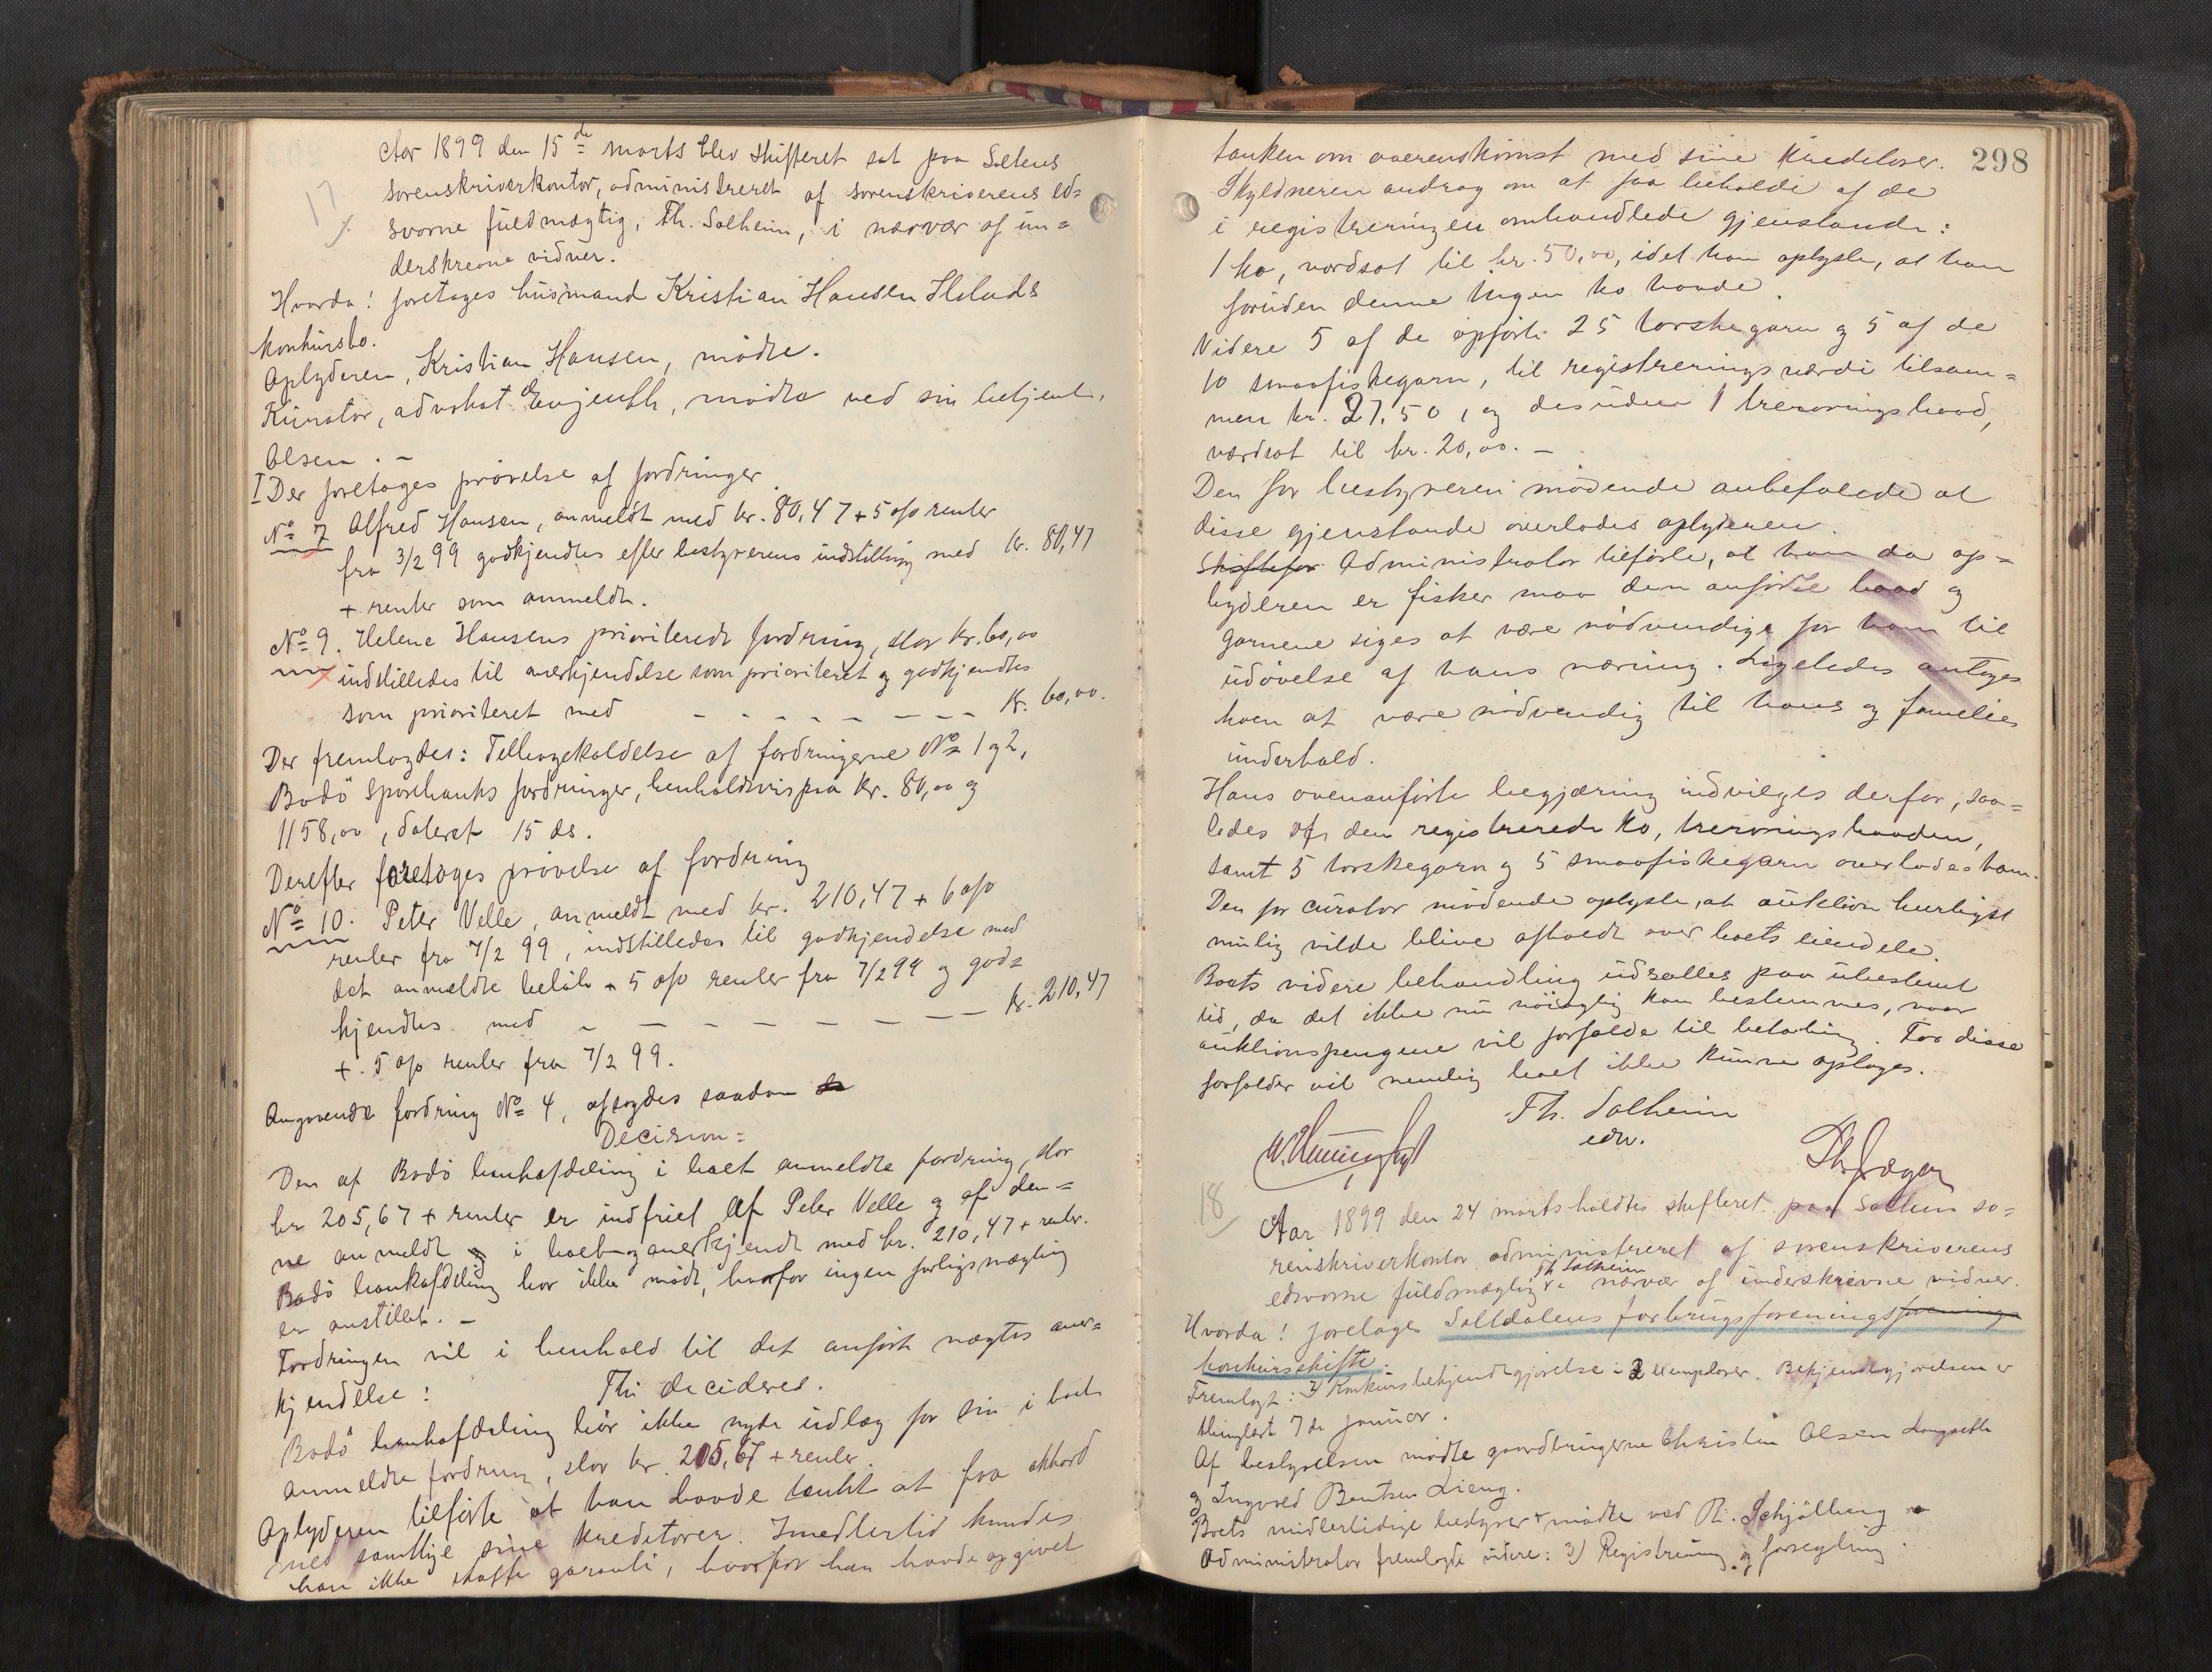 17
Aar 1899 den 15de marts blev skifteret sat paa Saltens
sorenskriverkontor, administreret af sorenskriverens ed=
svorne fuldmægtig, Th. Solheim, i nærvær af un=
derskrevne vidner.
Hvorda! foretages husmand Kristian Hansen
konkursbo.
Oplyderen, Kristian Hansen, mödte.
Kurator, advokat Engseth, mödte ved sin betjent,
Olsen. –
I Der foretages prövelse af fordringer.
No 7 Alfred Hansen, anmeldt med kr. 80,47 + 5 o/o renter
fra 3/2 99 godkjendtes efter bestyrerens indstilling med kr. 80,47
+ renter som anmeldt.
No 9. Helene Hansens prioriterede fordring, stor kr. 60,00
indstilledes til anerkjendelse som prioriteret og godkjendtes
som prioriteret med – – – – – – – – kr. 60,00.
Der fremlagdes: Tilbagekaldelse af fordringerne No 1 og 2,
Bodö Sparebanks fordringer, henholdsvis paa kr. 80,00 og
1158,00, dateret 15 ds.
Derefter foretages prövelse af fordring
No 10. Peter Velle, anmeldt med kr. 210,47 + 6 o/o
renter fra 7/2 99, indstilledes til godkjendelse med
det anmeldte belöb + 5 o/o renter fra 7/2 99 og god=
kjendtes med – – – – – – – – kr. 210,47
+ 5 o/o renter fra 7/2 99.
Angaaende fordring No 4, afsagdes saadan
Decision:
Den af Bodö bankafdeling i boet anmeldte fordring, stor
kr 205,67 + renter er indfriet af Peter Velle og af den=
ne anmeldt i boet og anerkjendt med kr. 210,47 + renter.
Bodö bankafdeling har ikke mödt, hvorfor ingen forligsmægling
er anstillet. –
Fordringen vil i henhold til det anförte nægtes aner=
kjendelse!
Thi decideres.
Bodö bankafdeling bör ikke nyde udlæg for sin i boet
anmeldte fordring, stor kr. 205,67 + renter.
Oplyderen tilförte at han havde tænkt at faa akkord
med samtlige sine kreditorer. Imedlertid kunde
han ikke skaffe garanti, hvorfor han havde opgivet
298
tanken om overenskomst med sine kreditorer.
Skyldneren androg om at faa beholde af de
i registreringen omhandlede gjenstande:
1 ko, værdsat til kr. 50,00, idet han oplyste, at han
foruden denne ingen ko havde.
Videre 5 af de opförte 25 torskegarn og 5 af de
10 smaafiskegarn, til registreringsværdi tilsam=
men kr. 27,50, og desuden 1 treroringsbaad,
værdsat til kr. 20,00. –
Den for bestyreren mödende anbefalede at
disse gjenstande overlodes oplyderen.
Administrator tilförte, at han da op=
byderen er fisker maa den anförte baad og
garnene siges at være nödvendige for ham til
udövelse af hans næring. Ligeledes antages
koen at være nödvendig til hans og families
underhold.
Hans ovenanförte begjæring indvilges derfor, saa=
ledes at den registrerede ko, treroringsbaaden,
samt 5 torskegarn og 5 smaafiskegarn overlodes ham.
Den for curator mödende oplyste, at auktion hurtigst
mulig vilde blive afholdt over boets eiendele.
Boets videre behandling udsattes paa ubestemt
tid, da det ikke nu nöiagtig kan bestemmes, naar
auktionspengene vil forfalde til betaling. För disse
forfalder vil nemlig boet ikke kunne optages.
Th. Solheim
edsv.
Th. Jæger
18
Aar 1899 den 24 marts holdtes skifteret paa Saltens so=
renskriverkontor administreret af sorenskriverens
edsvorne fuldmægtig Th Solheim i nærvær af underskrevne vidner.
Hvorda! foretages Saltdalens forbrugsforenings forenings
konkursskifte.
Fremlagt: Konkursbekjendtgjörelse i 2 exemplarer. Bekjendtgjörelsen er
thinglæst 7de januar.
Af bestyrelsen mödte gaardbrugerne Christen Olsen Langseth
og Ingvald Bentsen Lieng.
Boets midlertidige bestyrer mödte ved R. Schjölberg
Administrator fremlagde videre: 3) Registrering og forsegling.